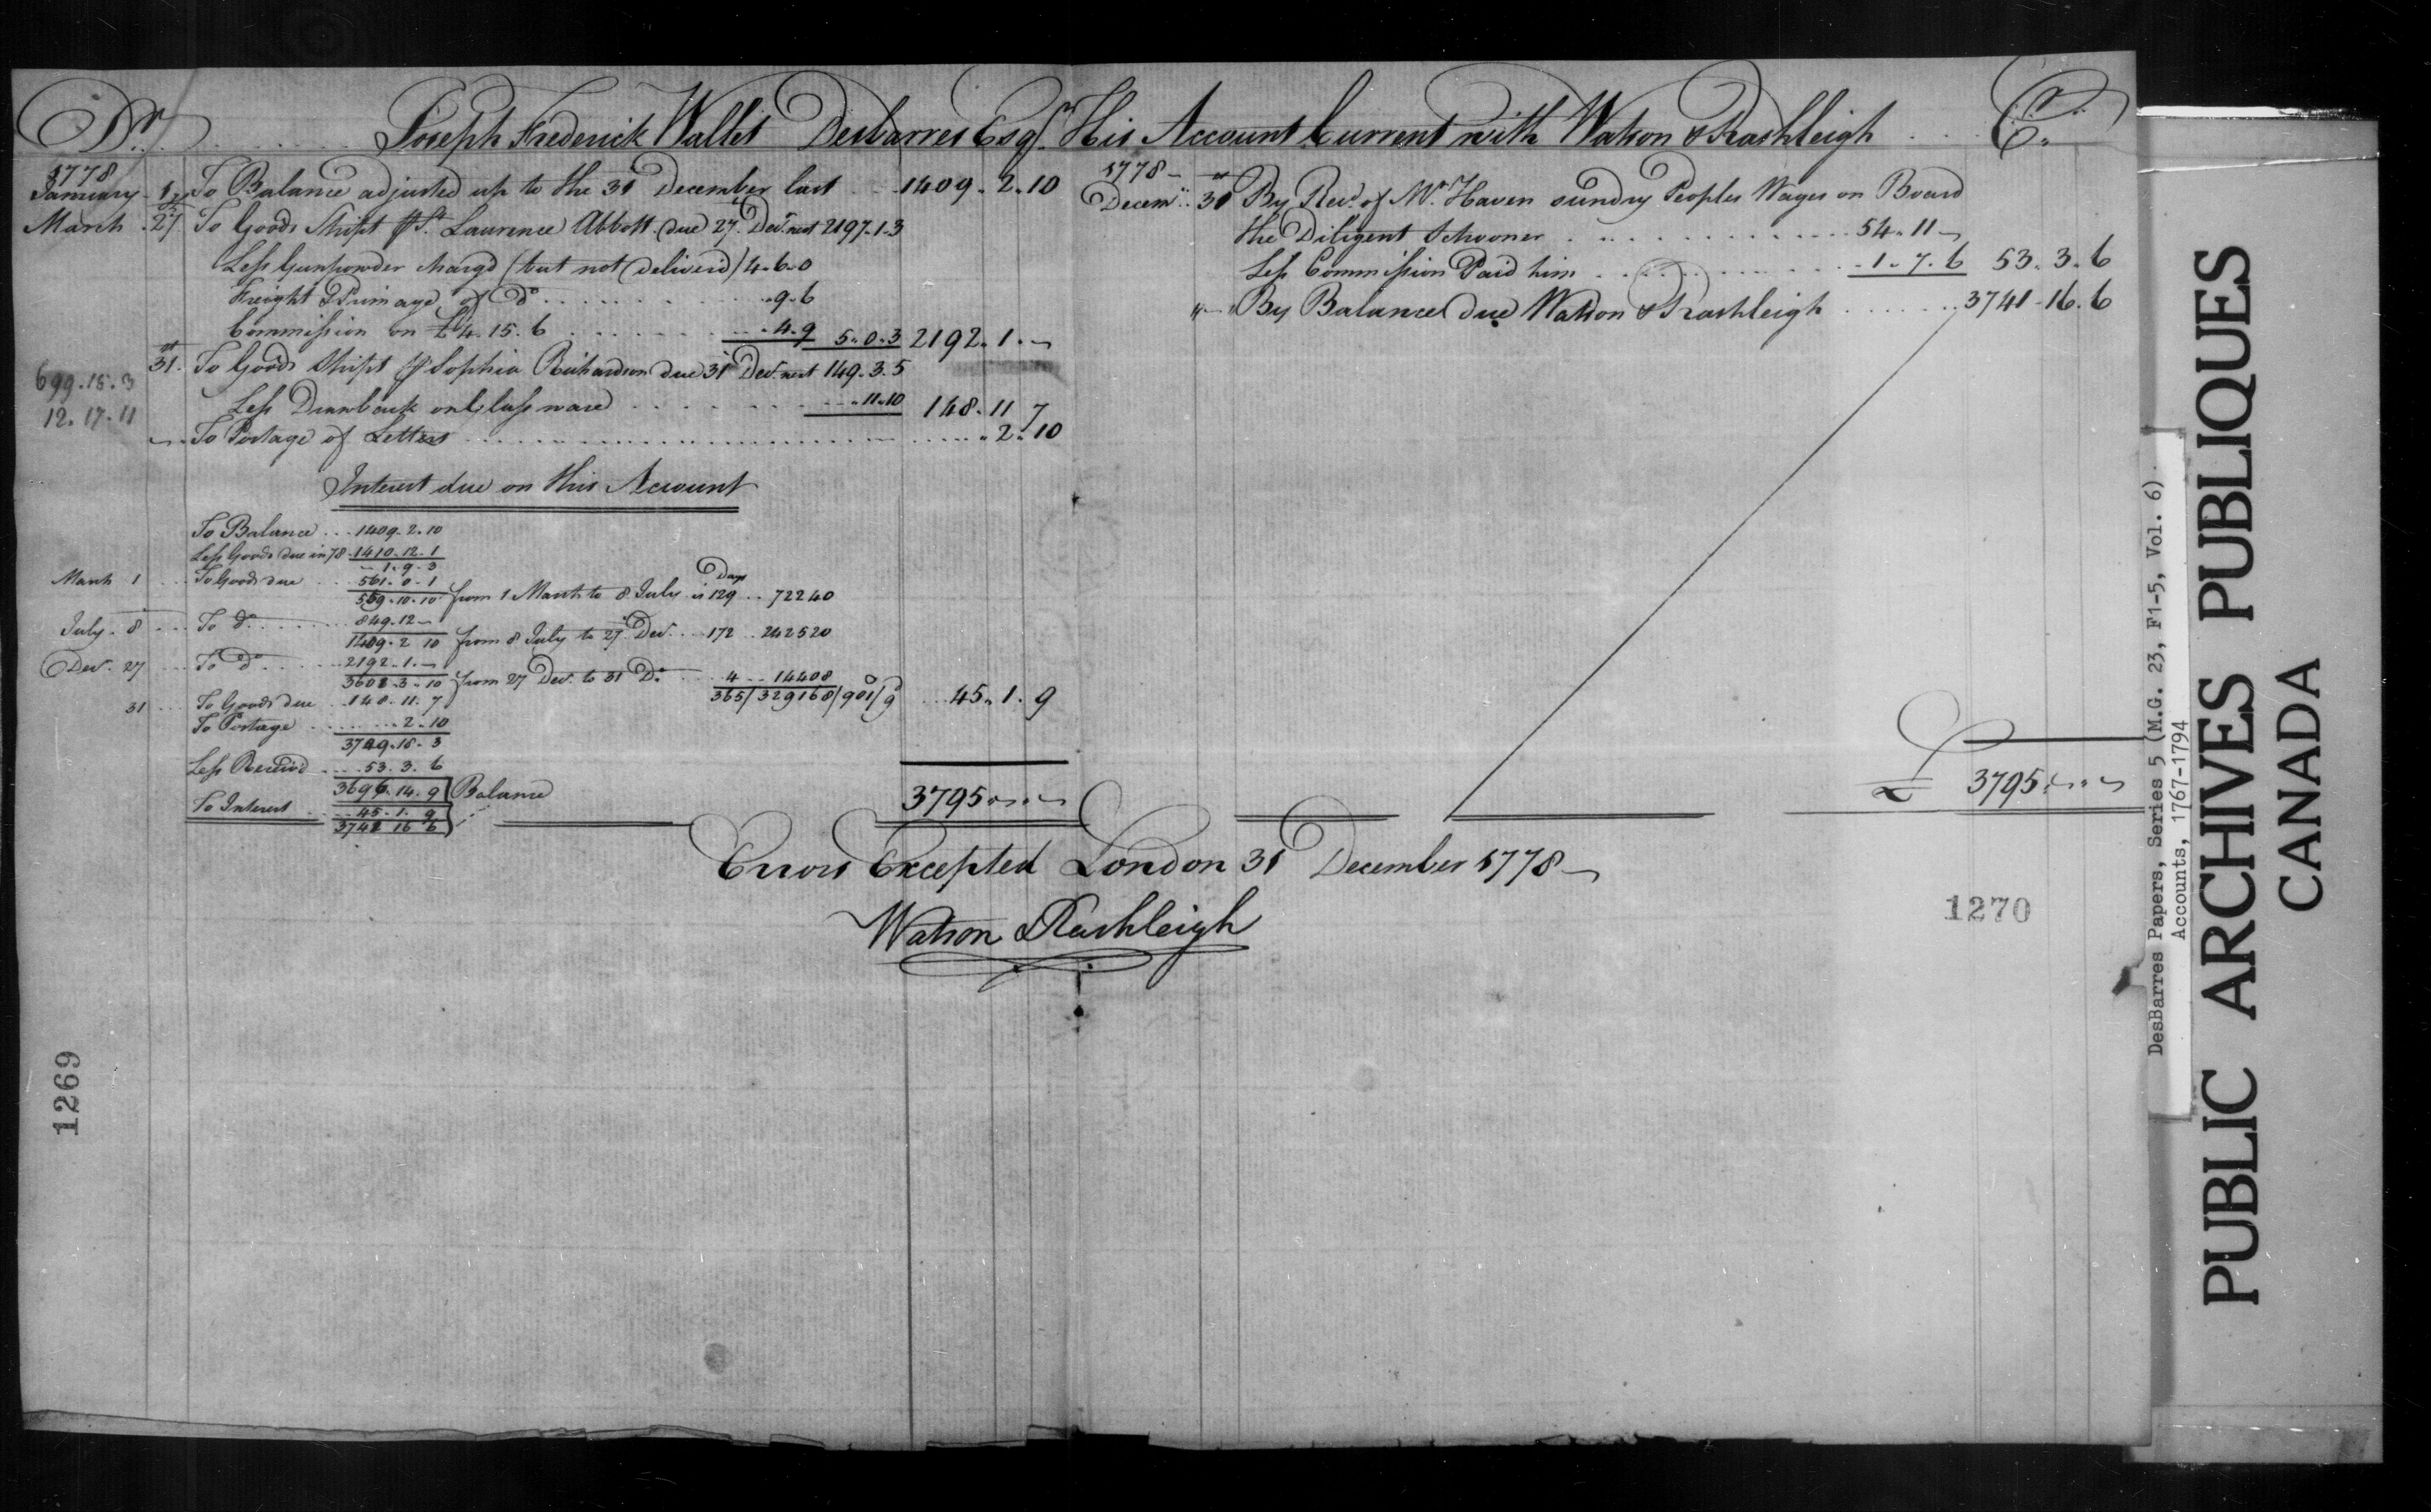 Dr. Joseph Frederick Wallet Desbarres Esqr. His Account Current with Watson & Rashleigh Cr.
1778
January 1st To Balance adjusted up to the 31 December last 1409. 2. 10
March 27 To Goods Shipt pr St. Laurence Abbott due 27 Decr. next 2197. 1. 3
Less Gunpowder chargd (but not deliverd) 4. 6. 0
Freight & Primage of Do. 9. 6
Commission on £4. 15. 6 4. 9 5. 0. 3 2192. 1. -
31st To Goods Shipt pr Sophia Richardson due 31 Decr. next 149. 3. 5
699. 15. 3
Less Drawback on Glass ware 11. 10 148. 11 7
12. 17. 11
To Postage of Letters 2. 10
Interest due on this Account
To Balance 1409. 2. 10
Less Goods due in 78 1410. 12. 1
1. 9. 3
March 1 To Goods due 561. 0. 1 Days
559. 10. 10 from 1 March to 8 July is 129 72240
July 8 To do. 849. 12 -
1409. 2 10 from 8 July to 27 Decr. 172 242520
Decr. 27 To do. 2192. 1. -
3601. 3. 10 from 27 Decr. to 31 Do. 4 14408
365/329168/901/9 45. 1. 9
31 To Goods due 148. 11. 7
To Postage 2. 10
3749. 18. 3
Less Receivd 53. 3. 6
3696. 14. 9 Balance
To Interest 45. 1. 9
3741 16 6
3795 . . -
1778 -
Decemr. 31st By Recd. of Mr. Haven sundry Peoples Wages on Board
the Diligent Schooner 54. 11 -
Less Commission Paid him 1. 7. 6 53. 3. 6
" - " By Balance due Watson & Rashleigh 3741. 16. 6
£ 3795 . . -
Errors Excepted London 31 December 1778 -
Watson & Rashleigh
1269
1270
DesBarres Papers, Series 5 (M.G. 23, F1-5, Vol. 6).
Accounts, 1767-1794
PUBLIC ARCHIVES PUBLIQUES
CANADA